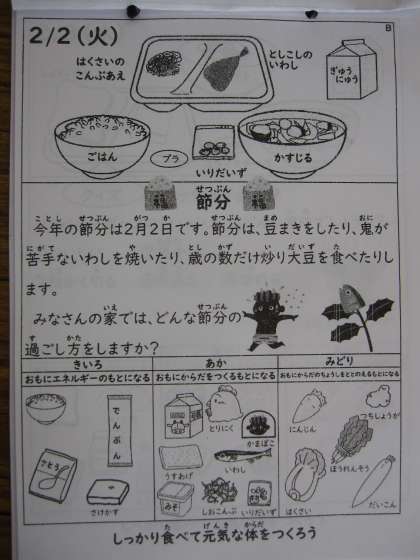 2/2(火)
B
はくさいの
こんぶあえ
としこしの
いわし
ぎゅう
にゅう
ごはん
プラ
いりだいず
かすじる
福 節分 福
せつぶん
今年の節分は2月2日です。節分は、豆まきをしたり、鬼が
ことし せつぶん がつ か せつぶん まめ おに
苦手ないわしを焼いたり、歳の数だけ炒り大豆を食べたりし
にがて や とし かず い だいず た
ます。
みなさんの家では、どんな節分の
いえ せつぶん
過ごし方をしますか?
す かた
きいろ
おもにエネルギーのもとになる
でんぷん
さとう
さけかす
あか
おもにからだをつくるもとになる
とりにく
かまぼこ
うすあげ
いわし
みそ
しおこんぶ
いりだいず
みどり
おもにからだのちょうしをととのえるもとになる
にんじん
つちしょうが
ほうれんそう
はくさい
だいこん
しっかり食べて元気な体をつくろう
た げんき からだ